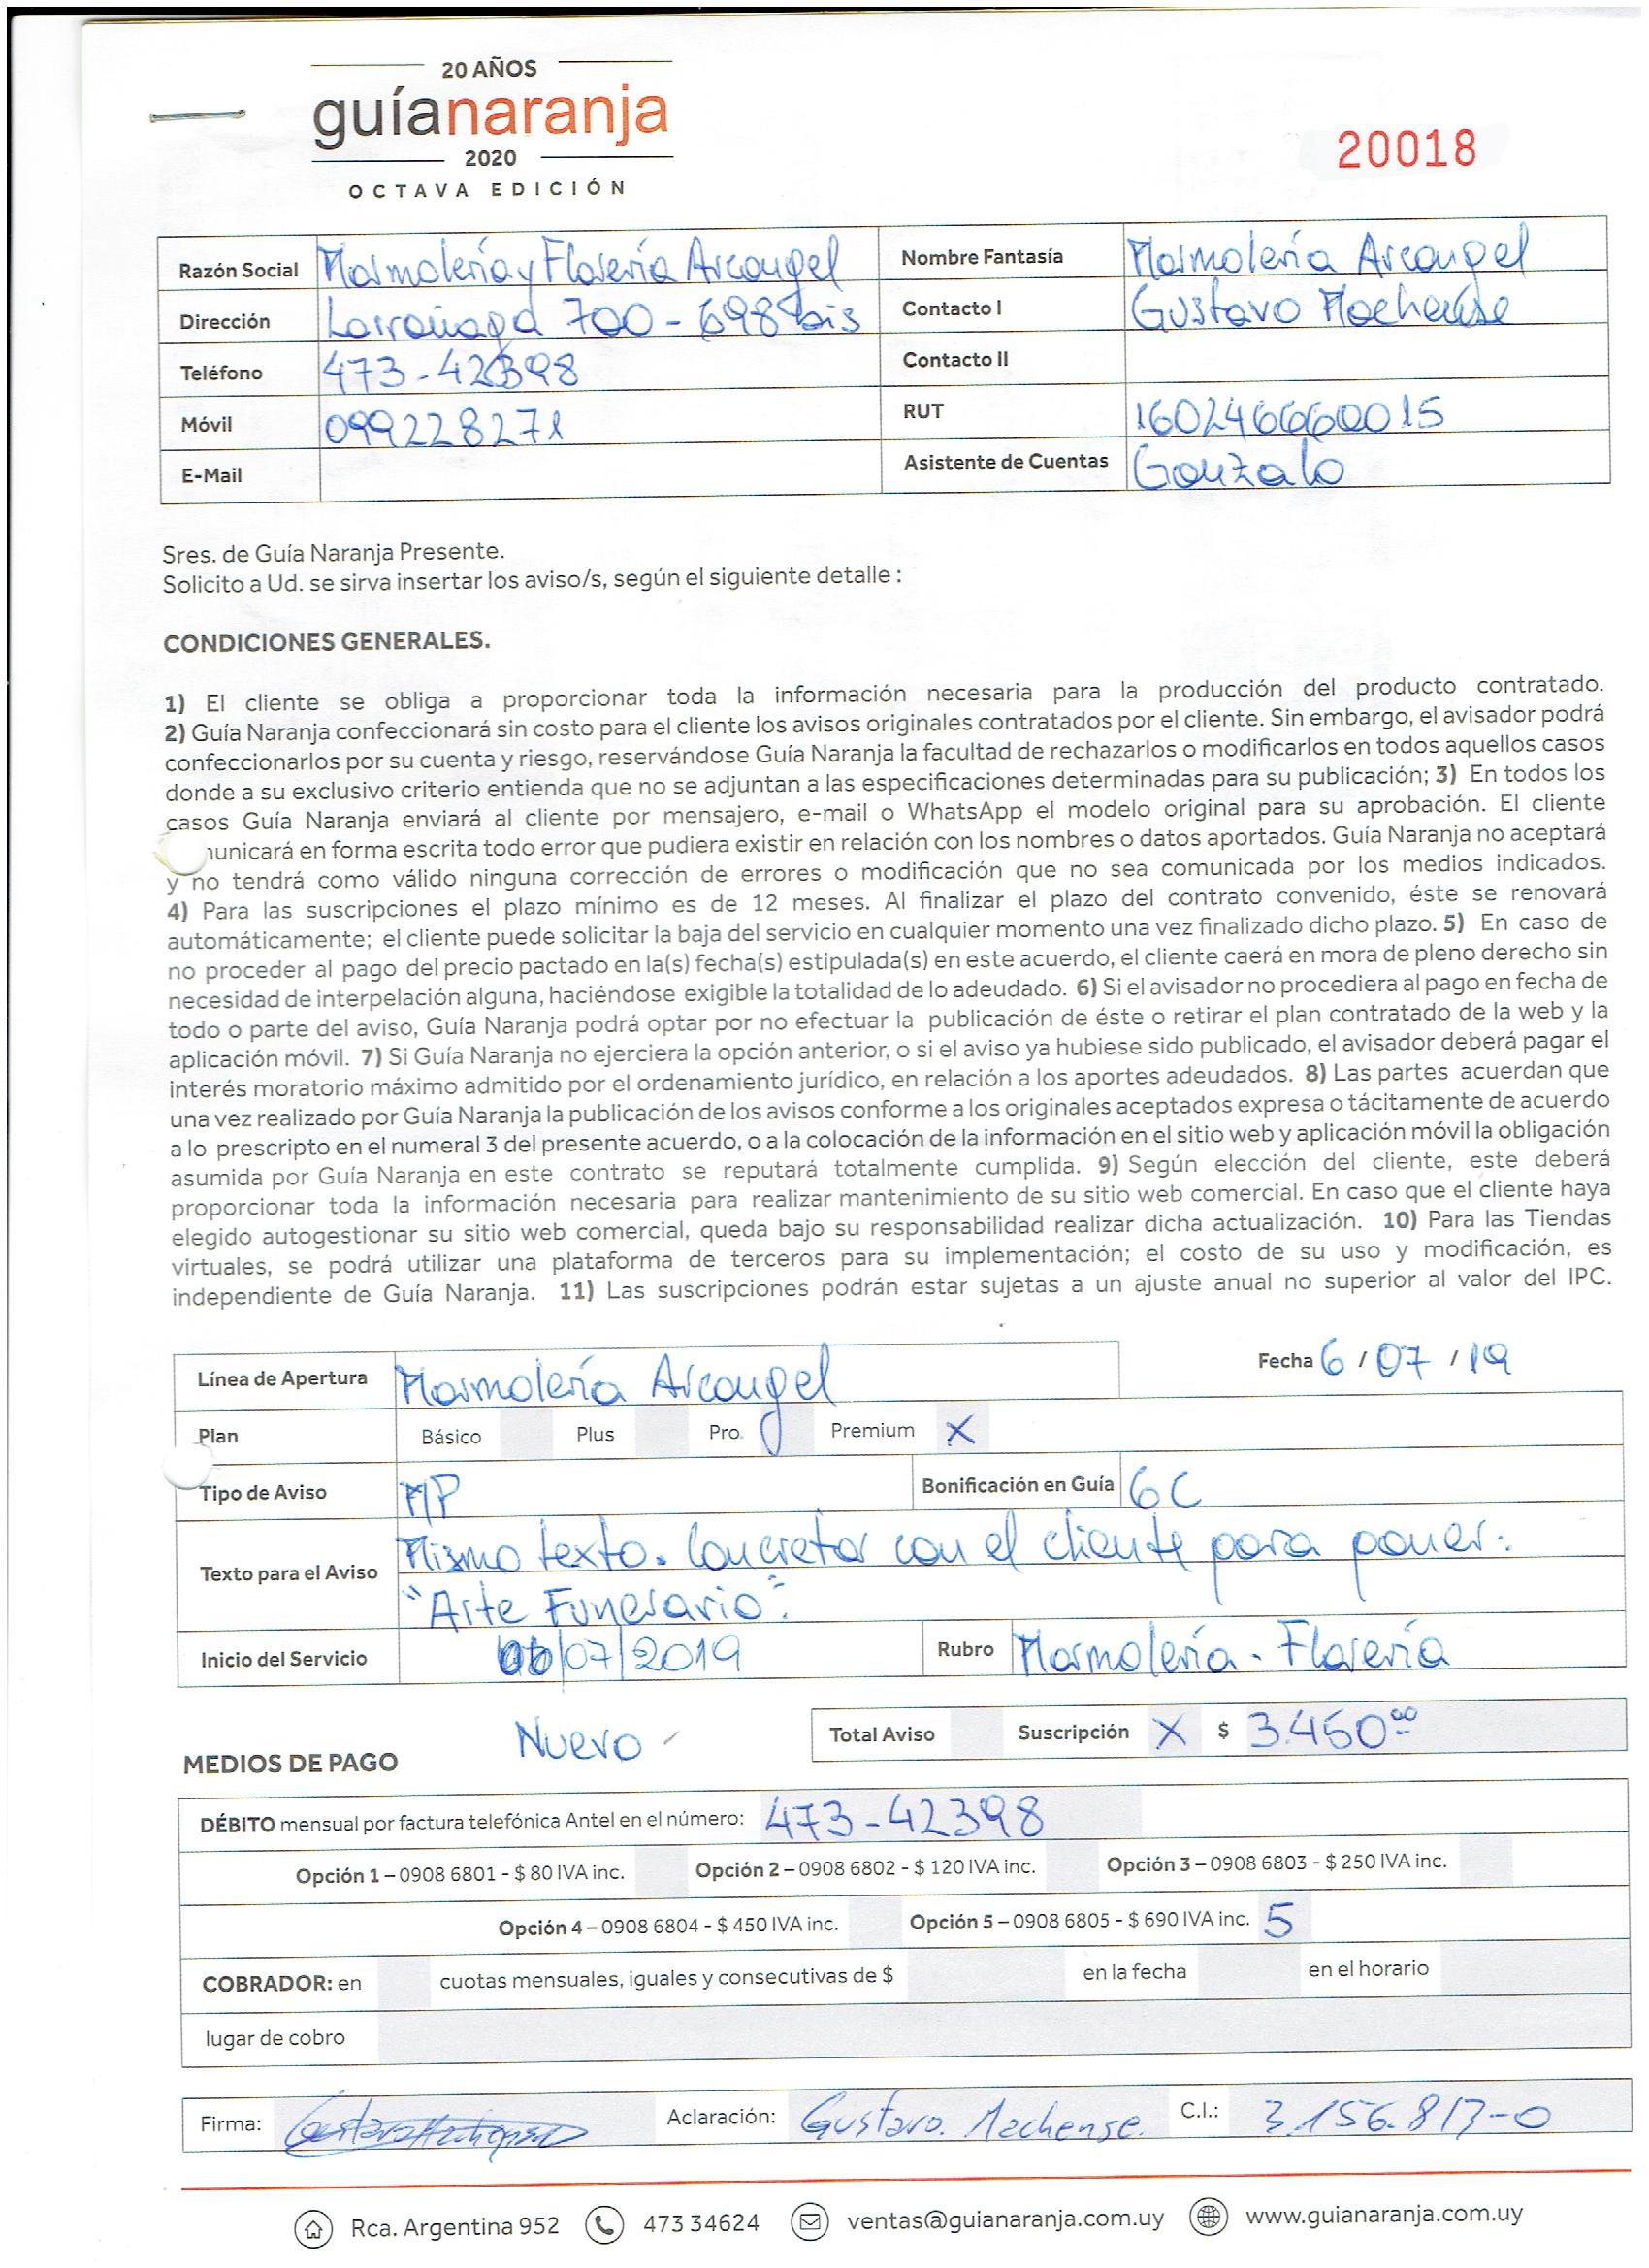 20 AÑOS
guíanaranja
2020
OCTAVA EDICIÓN
20018
Razón Social Marmolería y Florería Arcangel Nombre Fantasía Marmolería Arcangel
Dirección Larrañaga 700 - 698 bis Contacto I Gustavo Machense
Teléfono 473-42398 Contacto II
Móvil 099228271 RUT 160246660015
E-Mail Asistente de Cuentas Gonzalo
Sres. de Guía Naranja Presente.
Solicito a Ud. se sirva insertar los aviso/s, según el siguiente detalle :
CONDICIONES GENERALES.
1) El cliente se obliga a proporcionar toda la información necesaria para la producción del producto contratado.
2) Guía Naranja confeccionará sin costo para el cliente los avisos originales contratados por el cliente. Sin embargo, el avisador podrá
confeccionarlos por su cuenta y riesgo, reservándose Guía Naranja la facultad de rechazarlos o modificarlos en todos aquellos casos
donde a su exclusivo criterio entienda que no se adjuntan a las especificaciones determinadas para su publicación; 3) En todos los
casos Guía Naranja enviará al cliente por mensajero, e-mail o WhatsApp el modelo original para su aprobación. El cliente
municará en forma escrita todo error que pudiera existir en relación con los nombres o datos aportados. Guía Naranja no aceptará
y no tendrá como válido ninguna corrección de errores o modificación que no sea comunicada por los medios indicados.
4) Para las suscripciones el plazo mínimo es de 12 meses. Al finalizar el plazo del contrato convenido, éste se renovará
automáticamente; el cliente puede solicitar la baja del servicio en cualquier momento una vez finalizado dicho plazo. 5) En caso de
no proceder al pago del precio pactado en la(s) fecha(s) estipulada(s) en este acuerdo, el cliente caerá en mora de pleno derecho sin
necesidad de interpelación alguna, haciéndose exigible la totalidad de lo adeudado. 6) Si el avisador no procediera al pago en fecha de
todo o parte del aviso, Guía Naranja podrá optar por no efectuar la publicación de éste o retirar el plan contratado de la web y la
aplicación móvil. 7) Si Guía Naranja no ejerciera la opción anterior, o si el aviso ya hubiese sido publicado, el avisador deberá pagar el
interés moratorio máximo admitido por el ordenamiento jurídico, en relación a los aportes adeudados. 8) Las partes acuerdan que
una vez realizado por Guía Naranja la publicación de los avisos conforme a los originales aceptados expresa o tácitamente de acuerdo
a lo prescripto en el numeral 3 del presente acuerdo, o a la colocación de la información en el sitio web y aplicación móvil la obligación
asumida por Guía Naranja en este contrato se reputará totalmente cumplida. 9) Según elección del cliente, este deberá
proporcionar toda la información necesaria para realizar mantenimiento de su sitio web comercial. En caso que el cliente haya
elegido autogestionar su sitio web comercial, queda bajo su responsabilidad realizar dicha actualización. 10) Para las Tiendas
virtuales, se podrá utilizar una plataforma de terceros para su implementación; el costo de su uso y modificación, es
independiente de Guía Naranja. 11) Las suscripciones podrán estar sujetas a un ajuste anual no superior al valor del IPC.
Línea de Apertura Marmolería Arcangel Fecha 6 / 07 / 19
Plan Básico Plus Pro. Premium X
Tipo de Aviso MP Bonificación en Guía 6C
Texto para el Aviso Mismo texto. Concretar con el cliente para poner:
"Arte Funerario".
Inicio del Servicio 06/07/2019 Rubro Marmolería - Florería
Nuevo - Total Aviso Suscripción X $ 3.450⁰⁰
MEDIOS DE PAGO
DÉBITO mensual por factura telefónica Antel en el número: 473-42398
Opción 1 – 0908 6801 - $ 80 IVA inc. Opción 2 – 0908 6802 - $ 120 IVA inc. Opción 3 – 0908 6803 - $ 250 IVA inc.
Opción 4 – 0908 6804 - $ 450 IVA inc. Opción 5 – 0908 6805 - $ 690 IVA inc. 5
COBRADOR: en cuotas mensuales, iguales y consecutivas de $ en la fecha en el horario
lugar de cobro
Firma: Aclaración: Gustavo. Machense. C.I.: 3.156.817-0
Rca. Argentina 952 473 34624 ventas@guianaranja.com.uy www.guianaranja.com.uy